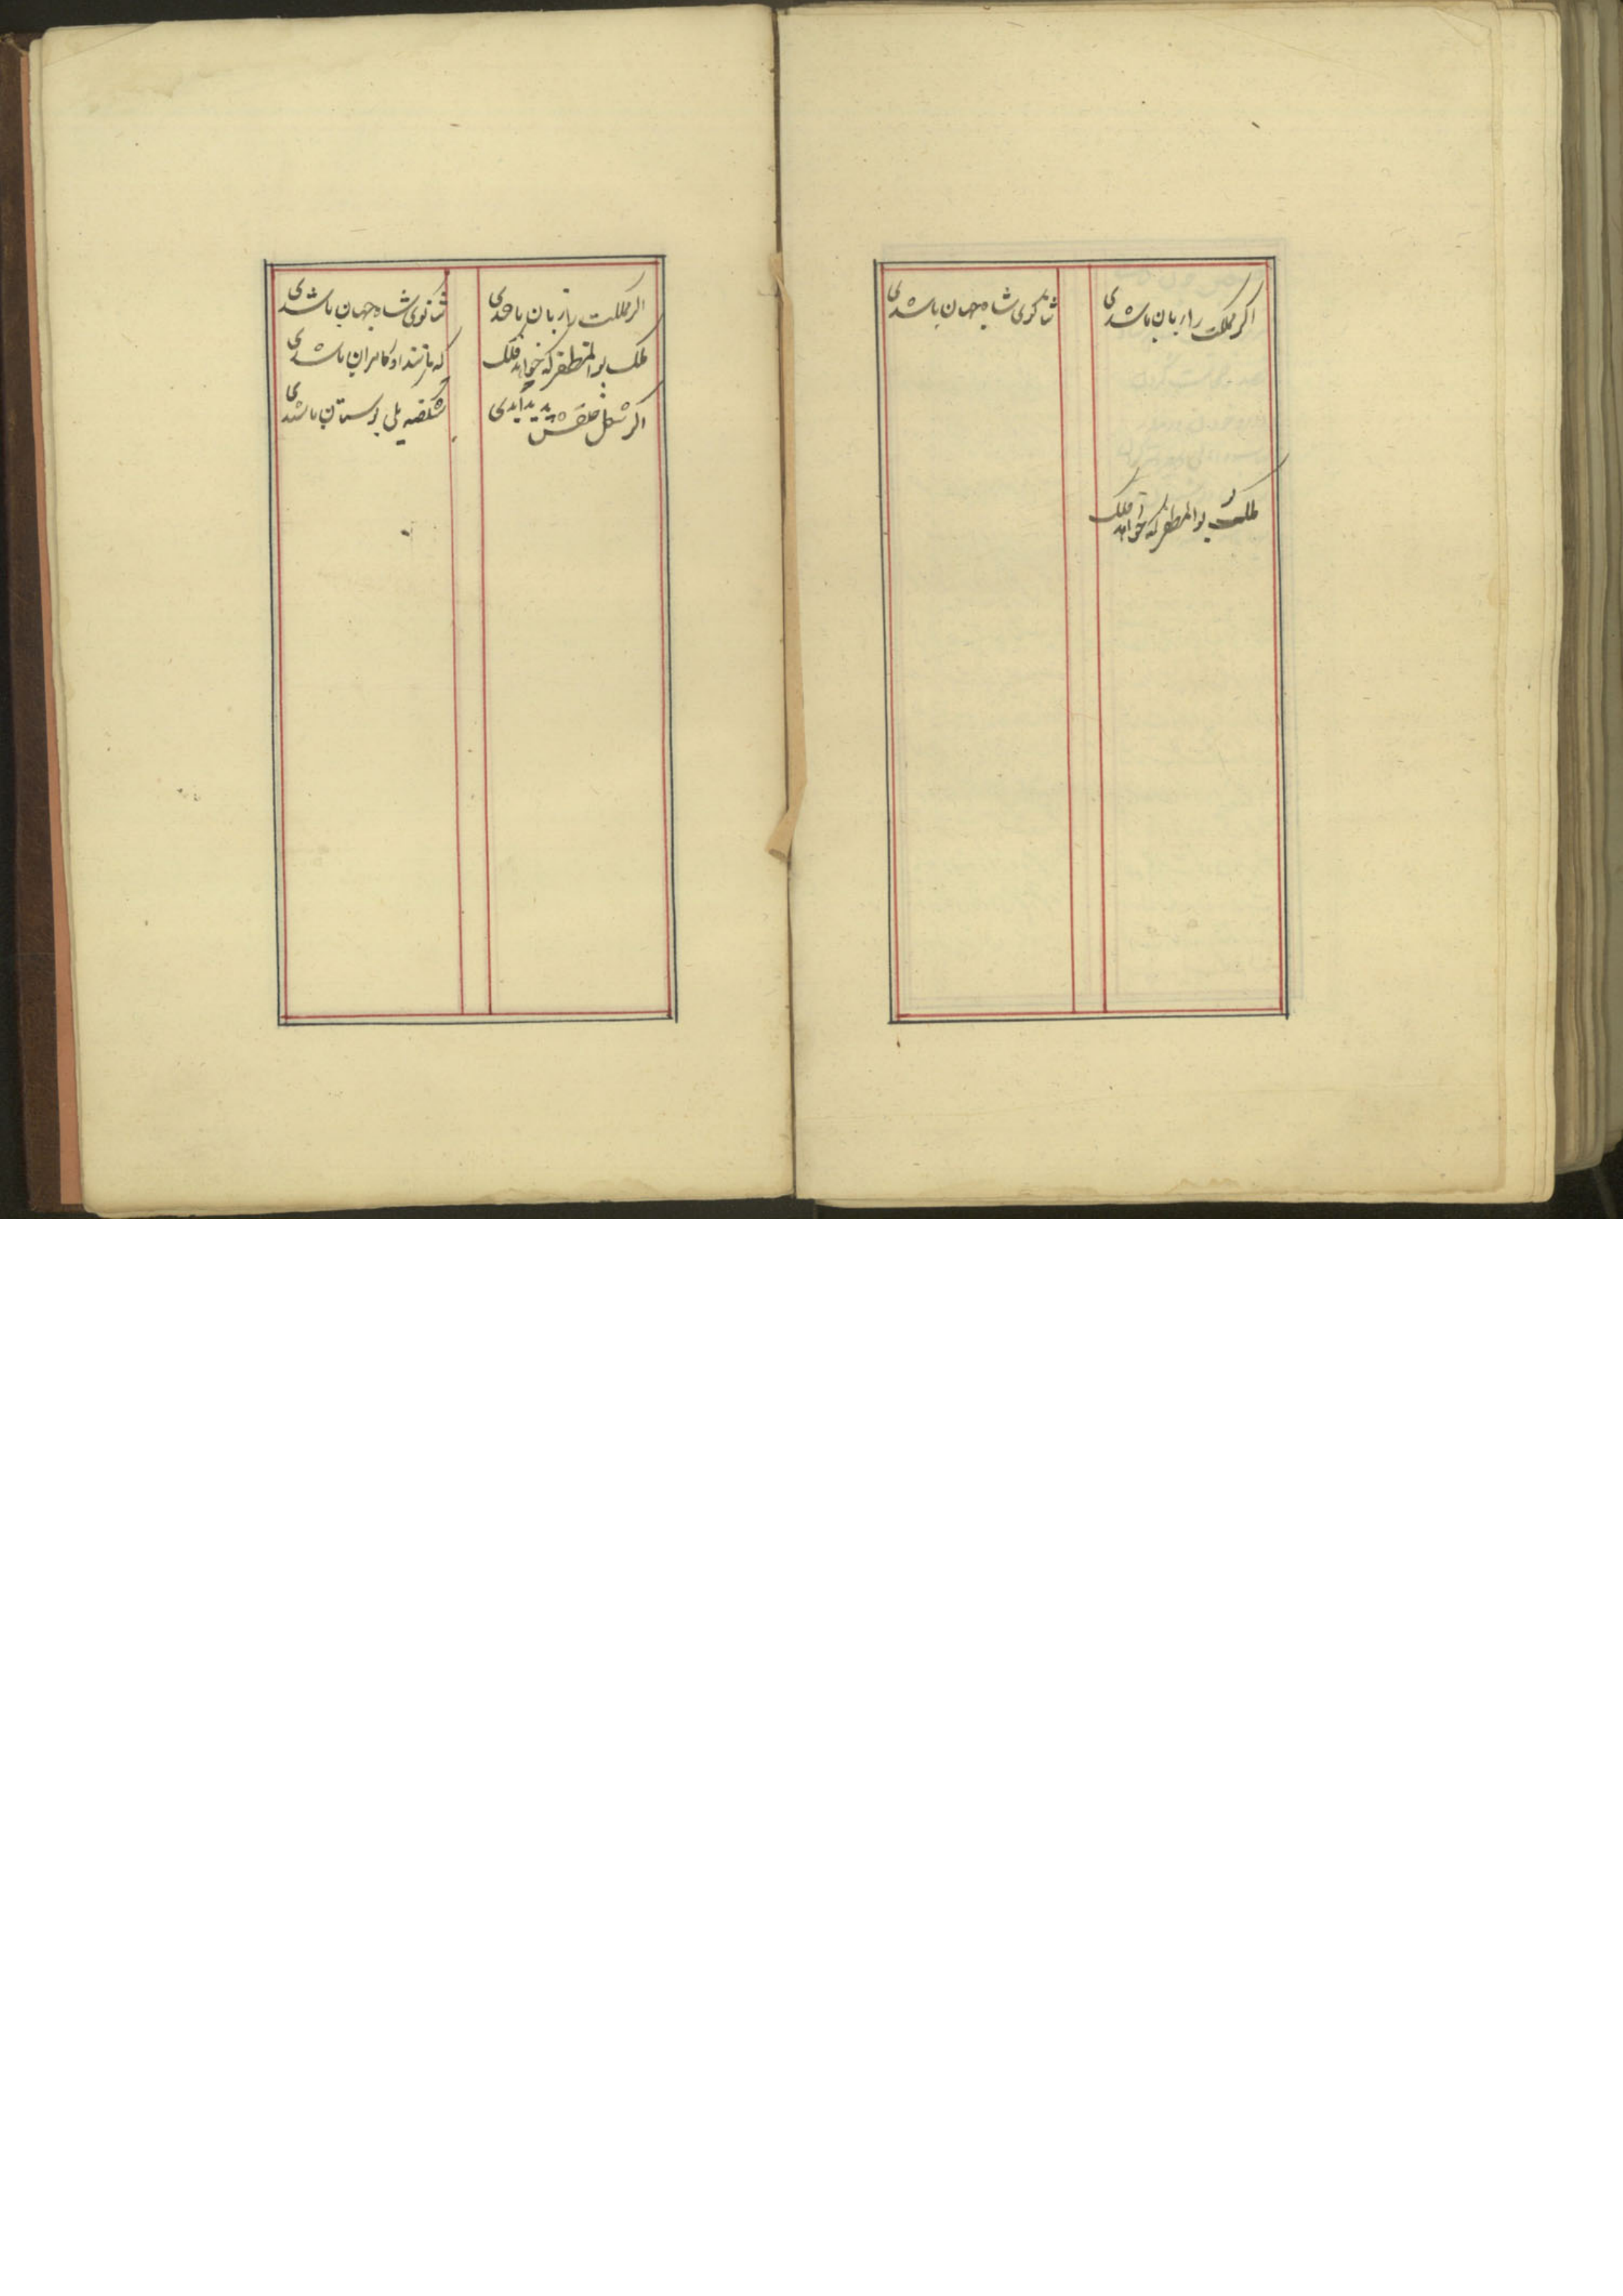 اکر مملکت را زبان باشدی
ثنا کوی شاه جهان باشدی
ملک بو المظفر که خواهد فلک
اکر مملکت را زبان باشدی
ثنا کوی شاه جهان باشدی
ملک بو المظفر که خواهد فلک
که مانند او کامران باشدی
اکر شکل خلقش پدید آیدی
شکفته یکی بوستان باشدی